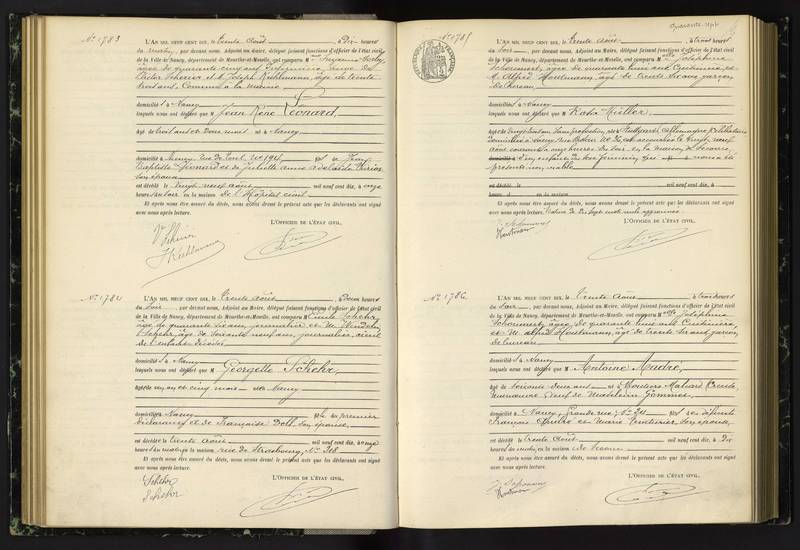 N° 1783
L'AN MIL NEUF CENT DIX, le trente Août, à Dix heures
du matin, par devant nous, Adjoint au Maire, délégué faisant fonctions d'officier de l'état civil
de la Ville de Nancy, département de Meurthe-et-Moselle, ont comparu M Suzanne
âgée de quarante cinq ans, veuve de
et M. Joseph Kuhlmann, âgé de trente
trois ans,
domiciliés à Nancy
lesquels nous ont déclaré que M Jean René Léonard,
âgé de trois ans et Deux mois né à Nancy
domicilié à Nancy, rue de N° 194 fils de Jean
Baptiste Léonard et de Juliette Anne Adélaïde
son épouse
est décédé le vingt neuf Août mil neuf cent dix, à onze
heures du soir en la maison de l'Hôpital civil
Et après nous être assuré du décès, nous avons dressé le présent acte que les déclarants ont signé
avec nous après lecture.
L'OFFICIER DE L'ÉTAT CIVIL,
J Kuhlmann
N° 1784
L'AN MIL NEUF CENT DIX, le trente Août, à Deux heures
du Soir, par devant nous, Adjoint au Maire, délégué faisant fonctions d'officier de l'état civil
de la Ville de Nancy, département de Meurthe-et-Moselle, ont comparu M Emile Schehr,
âgé de quarante ans, journalier et M.
Schehr, âgé de soixante neuf ans, journalier, aïeul
de l'enfant décédée,
domiciliés à Nancy
lesquels nous ont déclaré que M Georgette Schehr,
âgée de un an et cinq mois née à Nancy
domiciliée à Nancy fille du premier
déclarant et de Françoise Doll, son épouse
est décédée le trente Août mil neuf cent dix, à onze
heures du matin en la maison rue de Strasbourg, N° 218
Et après nous être assuré du décès, nous avons dressé le présent acte que les déclarants ont signé
avec nous après lecture.
L'OFFICIER DE L'ÉTAT CIVIL,
Schehr
Schehr
Quarante-sept
N° 1785
L'AN MIL NEUF CENT DIX, le trente Août, à trois heures
du Soir, par devant nous, Adjoint au Maire, délégué faisant fonctions d'officier de l'état civil
de la Ville de Nancy, département de Meurthe-et-Moselle, ont comparu M elle Joséphine
âgée de quarante huit ans, Couturière, et
M. Alfred Houtmann, âgé de trente six ans, garçon
de bureau
domiciliés à Nancy
lesquels nous ont déclaré que M Katia Müller,
âgée de vingt trois ans, Sans profession, née à Stuttgard, Allemagne, Célibataire
domiciliée à Nancy, est accouchée le vingt neuf
Août courant à onze heures du Soir en la maison de Secours,
d'un enfant du sexe féminin, qui nous a été
présenté non viable
est décédé le mil neuf cent dix, à
heure d en la maison
Et après nous être assuré du décès, nous avons dressé le présent acte que les déclarants ont signé
avec nous après lecture. mots nuls approuvés
L'OFFICIER DE L'ÉTAT CIVIL,
Houtmann
N° 1786
L'AN MIL NEUF CENT DIX, le trente Août, à trois heures
du Soir, par devant nous, Adjoint au Maire, délégué faisant fonctions d'officier de l'état civil
de la Ville de Nancy, département de Meurthe-et-Moselle, ont comparu M elle Joséphine
âgée de quarante huit ans, Couturière,
et M. Alfred Houtmann, âgé de trente six ans, garçon
de bureau
domiciliés à Nancy
lesquels nous ont déclaré que M Antoine André,
âgé de soixante deux ans né à Moutiers
manoeuvre, veuf de Madeleine Gommer,
domicilié à Nancy, Grande rue, N° 24 fils des défunts
François André et Marie son épouse,
est décédé le trente Août mil neuf cent dix, à Dix
heures du matin, en la maison de Secours
Et après nous être assuré du décès, nous avons dressé le présent acte que les déclarants ont signé
avec nous après lecture.
L'OFFICIER DE L'ÉTAT CIVIL,
Houtmann